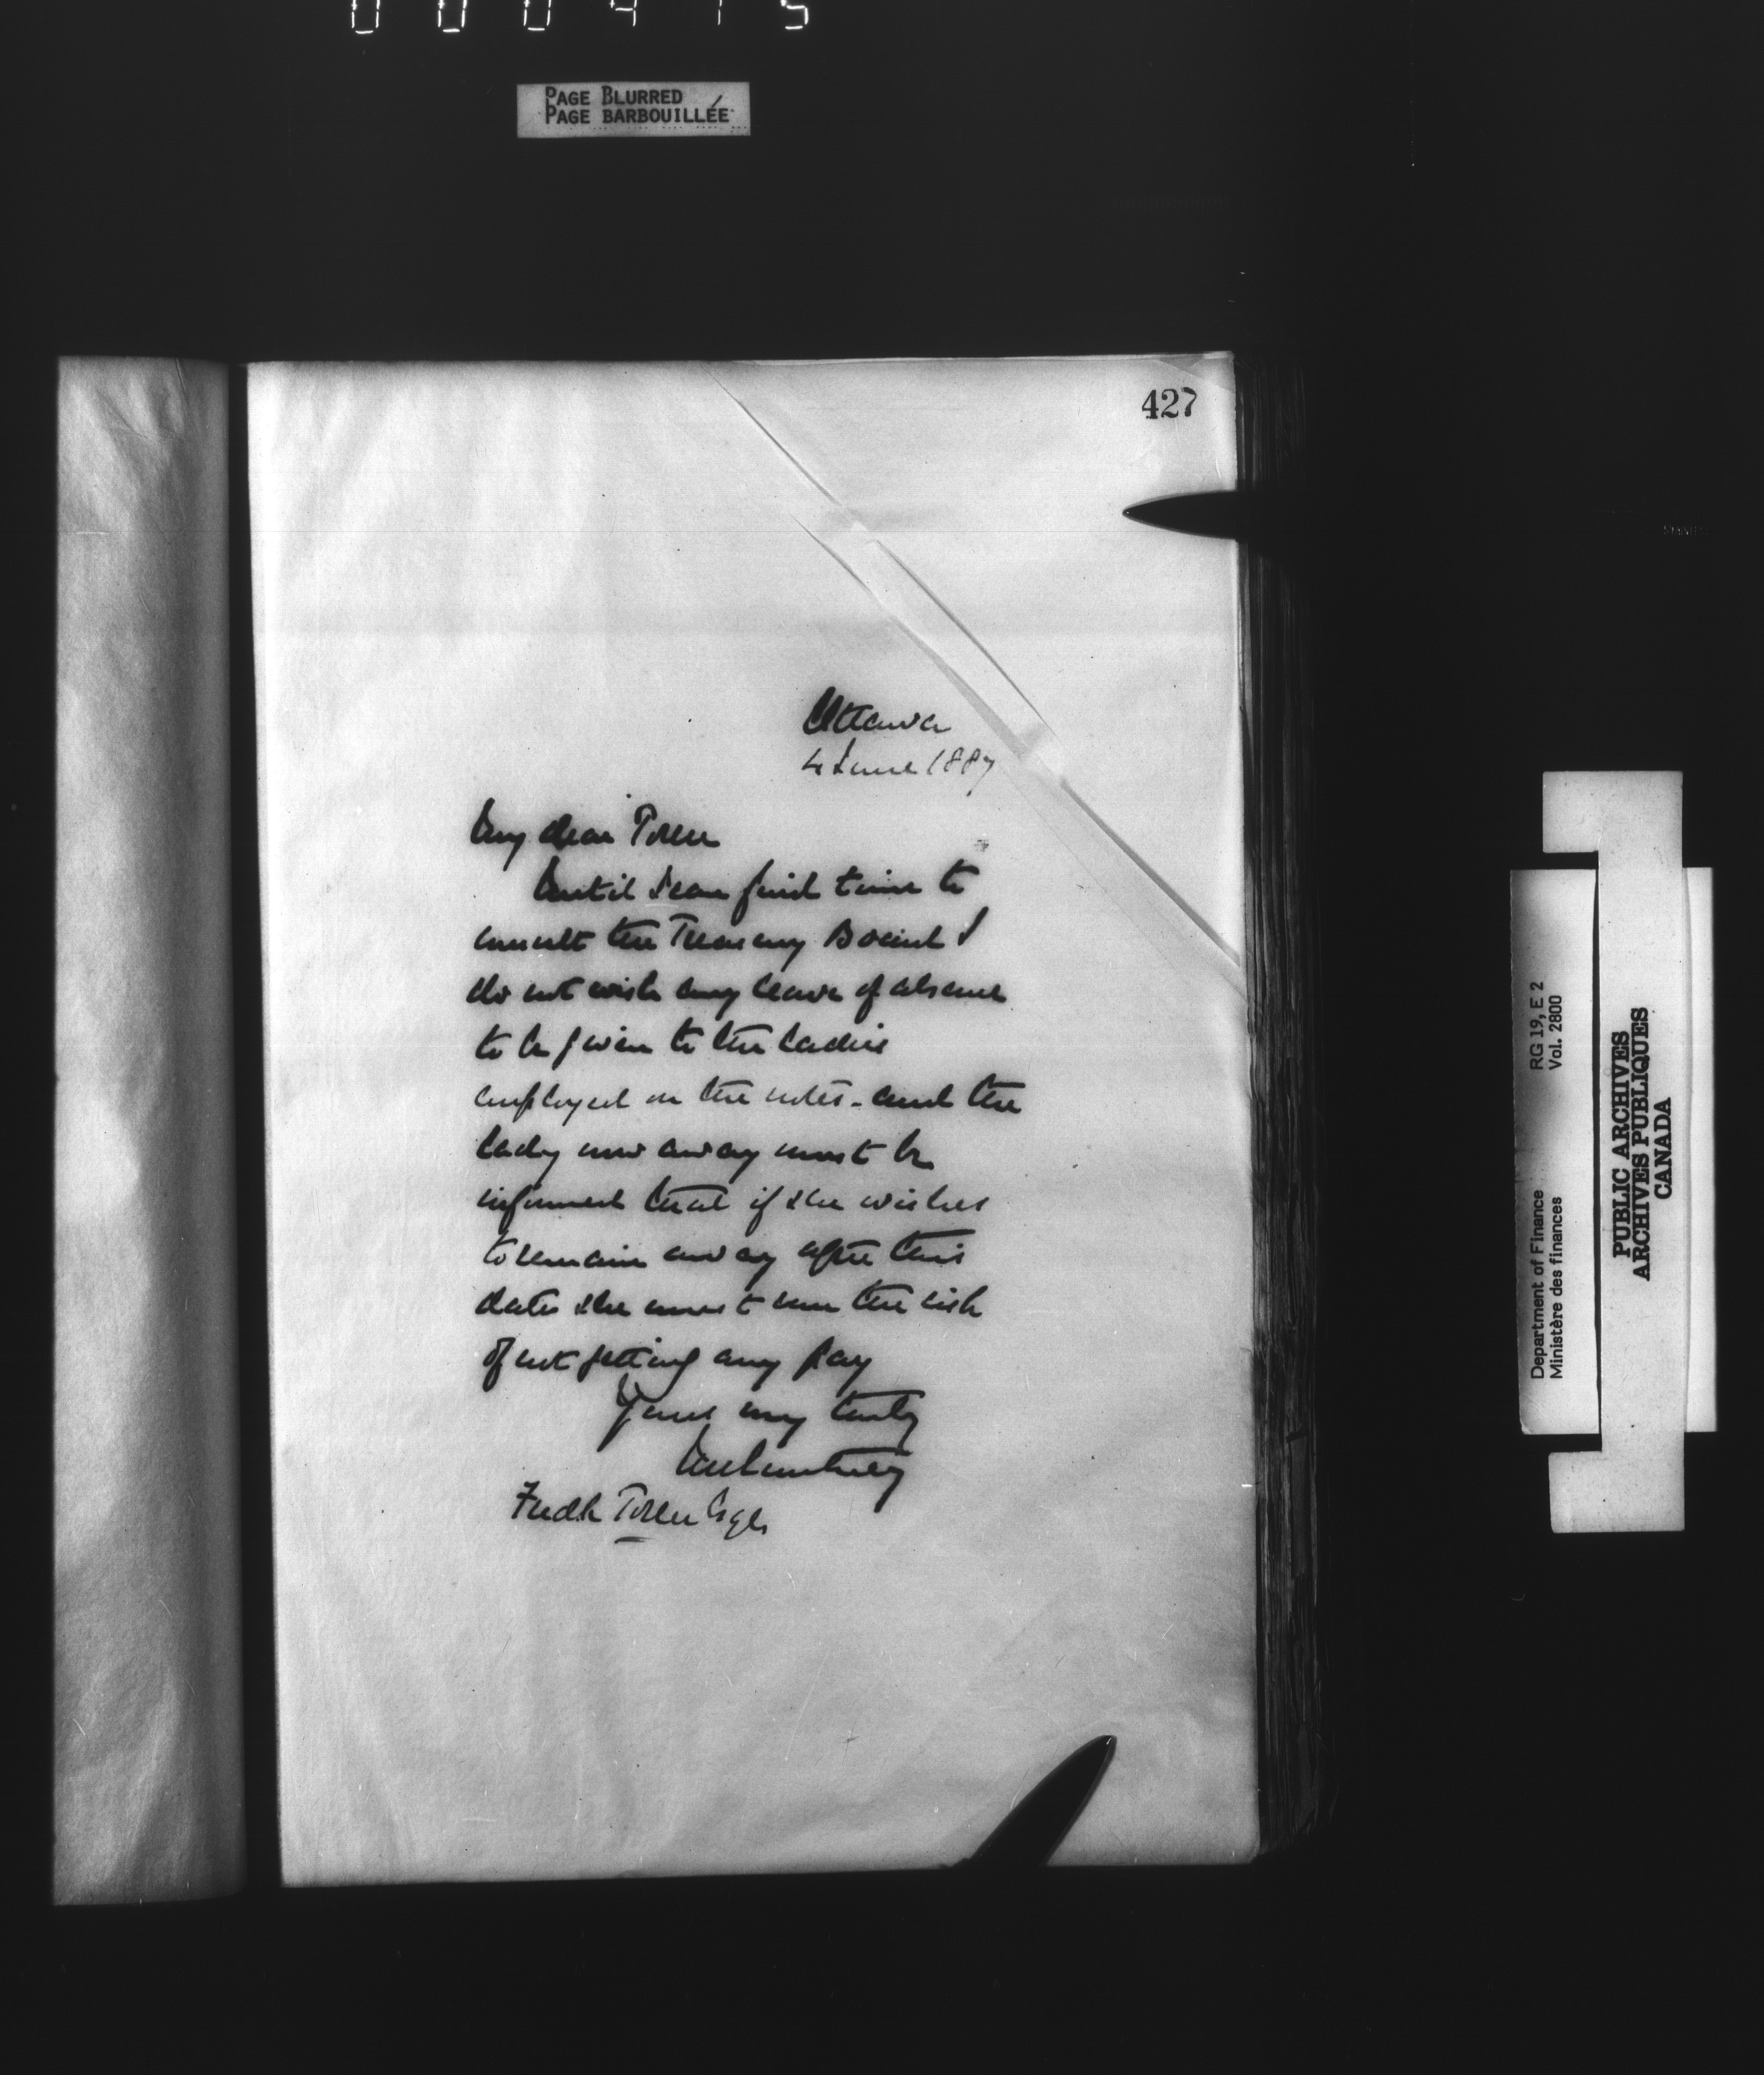 000415
PAGE BLURRED
PAGE BARBOUILLÉE
427
Ottawa
4 June 1887
My dear Toller
Until I can find time to
consult the Treasury Board I
do not wish any leave of absence
to be given to the ladies
employed on the notes - and the
lady now away must be
informed that if she wishes
to remain away after this
date she must run the risk
of not getting any pay
Yours very truly
JMCourtney
Fredk Toller Esqr
Department of Finance
Ministère des finances
RG 19, E 2
Vol. 2800
PUBLIC ARCHIVES
ARCHIVES PUBLIQUES
CANADA